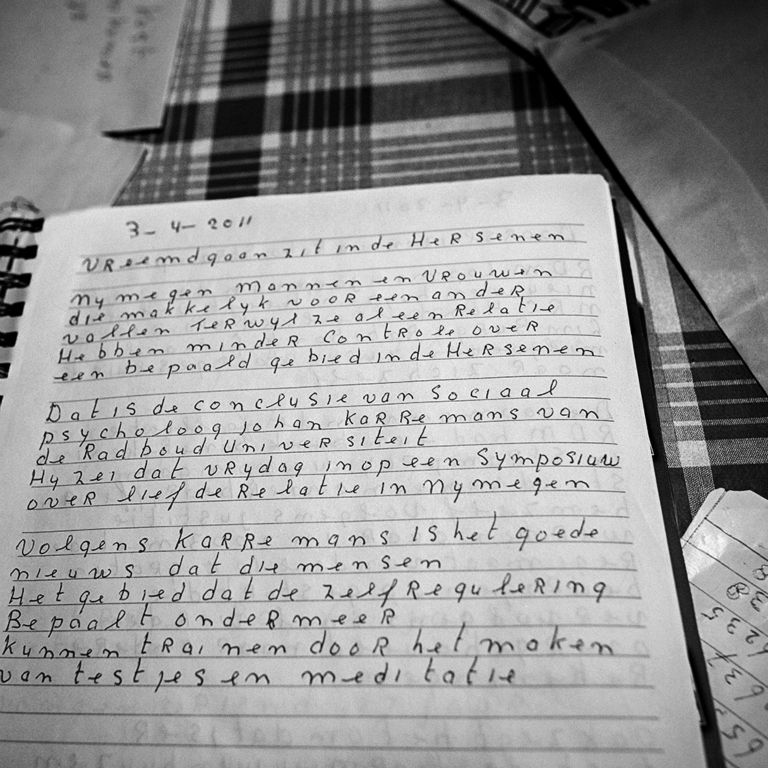 3-4-2011
VReemdgaan zit in de HeRsenen
nymegen mannen en VROuwen
die makkelyk vooR een andeR
vallen TeRwyl ze al een Relatie
Hebben mindeR contRole oveR
een bepaald gebied in de HeRsenen
Dat is de conclusie van sociaal
psycholoog johan KaRRemans van
de Radboud UniveRsiteit
Hy zei dat VRydag in op een Symposium
oveR liefdeRelatie in nymegen
volgens KaRRemans is het goede
nieuws dat die mensen
Het gebied dat de zelfRegulering
Bepaalt ondeRmeeR
kunnen tRainen dooR het maken
van testjes en meditatie